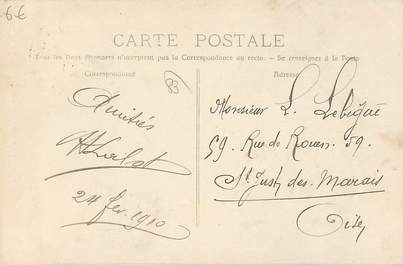 6€
CARTE POSTALE
Tous les Pays Étrangers n'acceptent pas la Correspondance au recto. - Se renseigner à la Poste
Correspondance
Adresse
83
Amitiés
24 fev. 1910
Monsieur L. Lebègue
59. Rue de Rouen. 59.
St Just des Marais
Oise